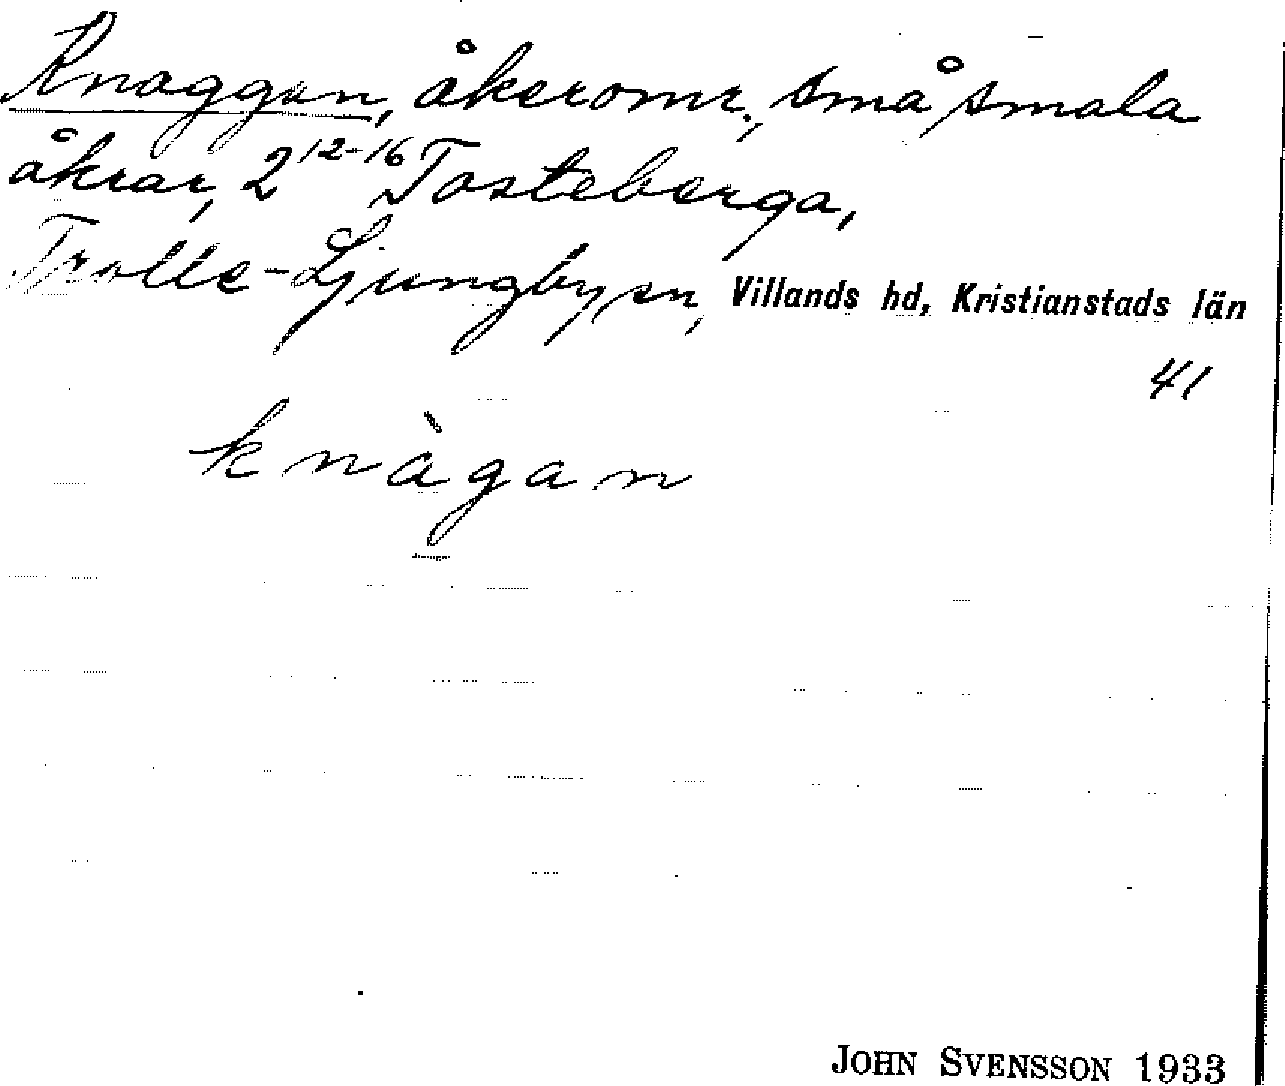 Knaggan, åkeromr., små smala
åkrar, 2 12-16 Tosteberga,
Trolle-Ljungby sn, Villands hd, Kristianstads län
41
knàgan
JOHN SVENSSON 1933